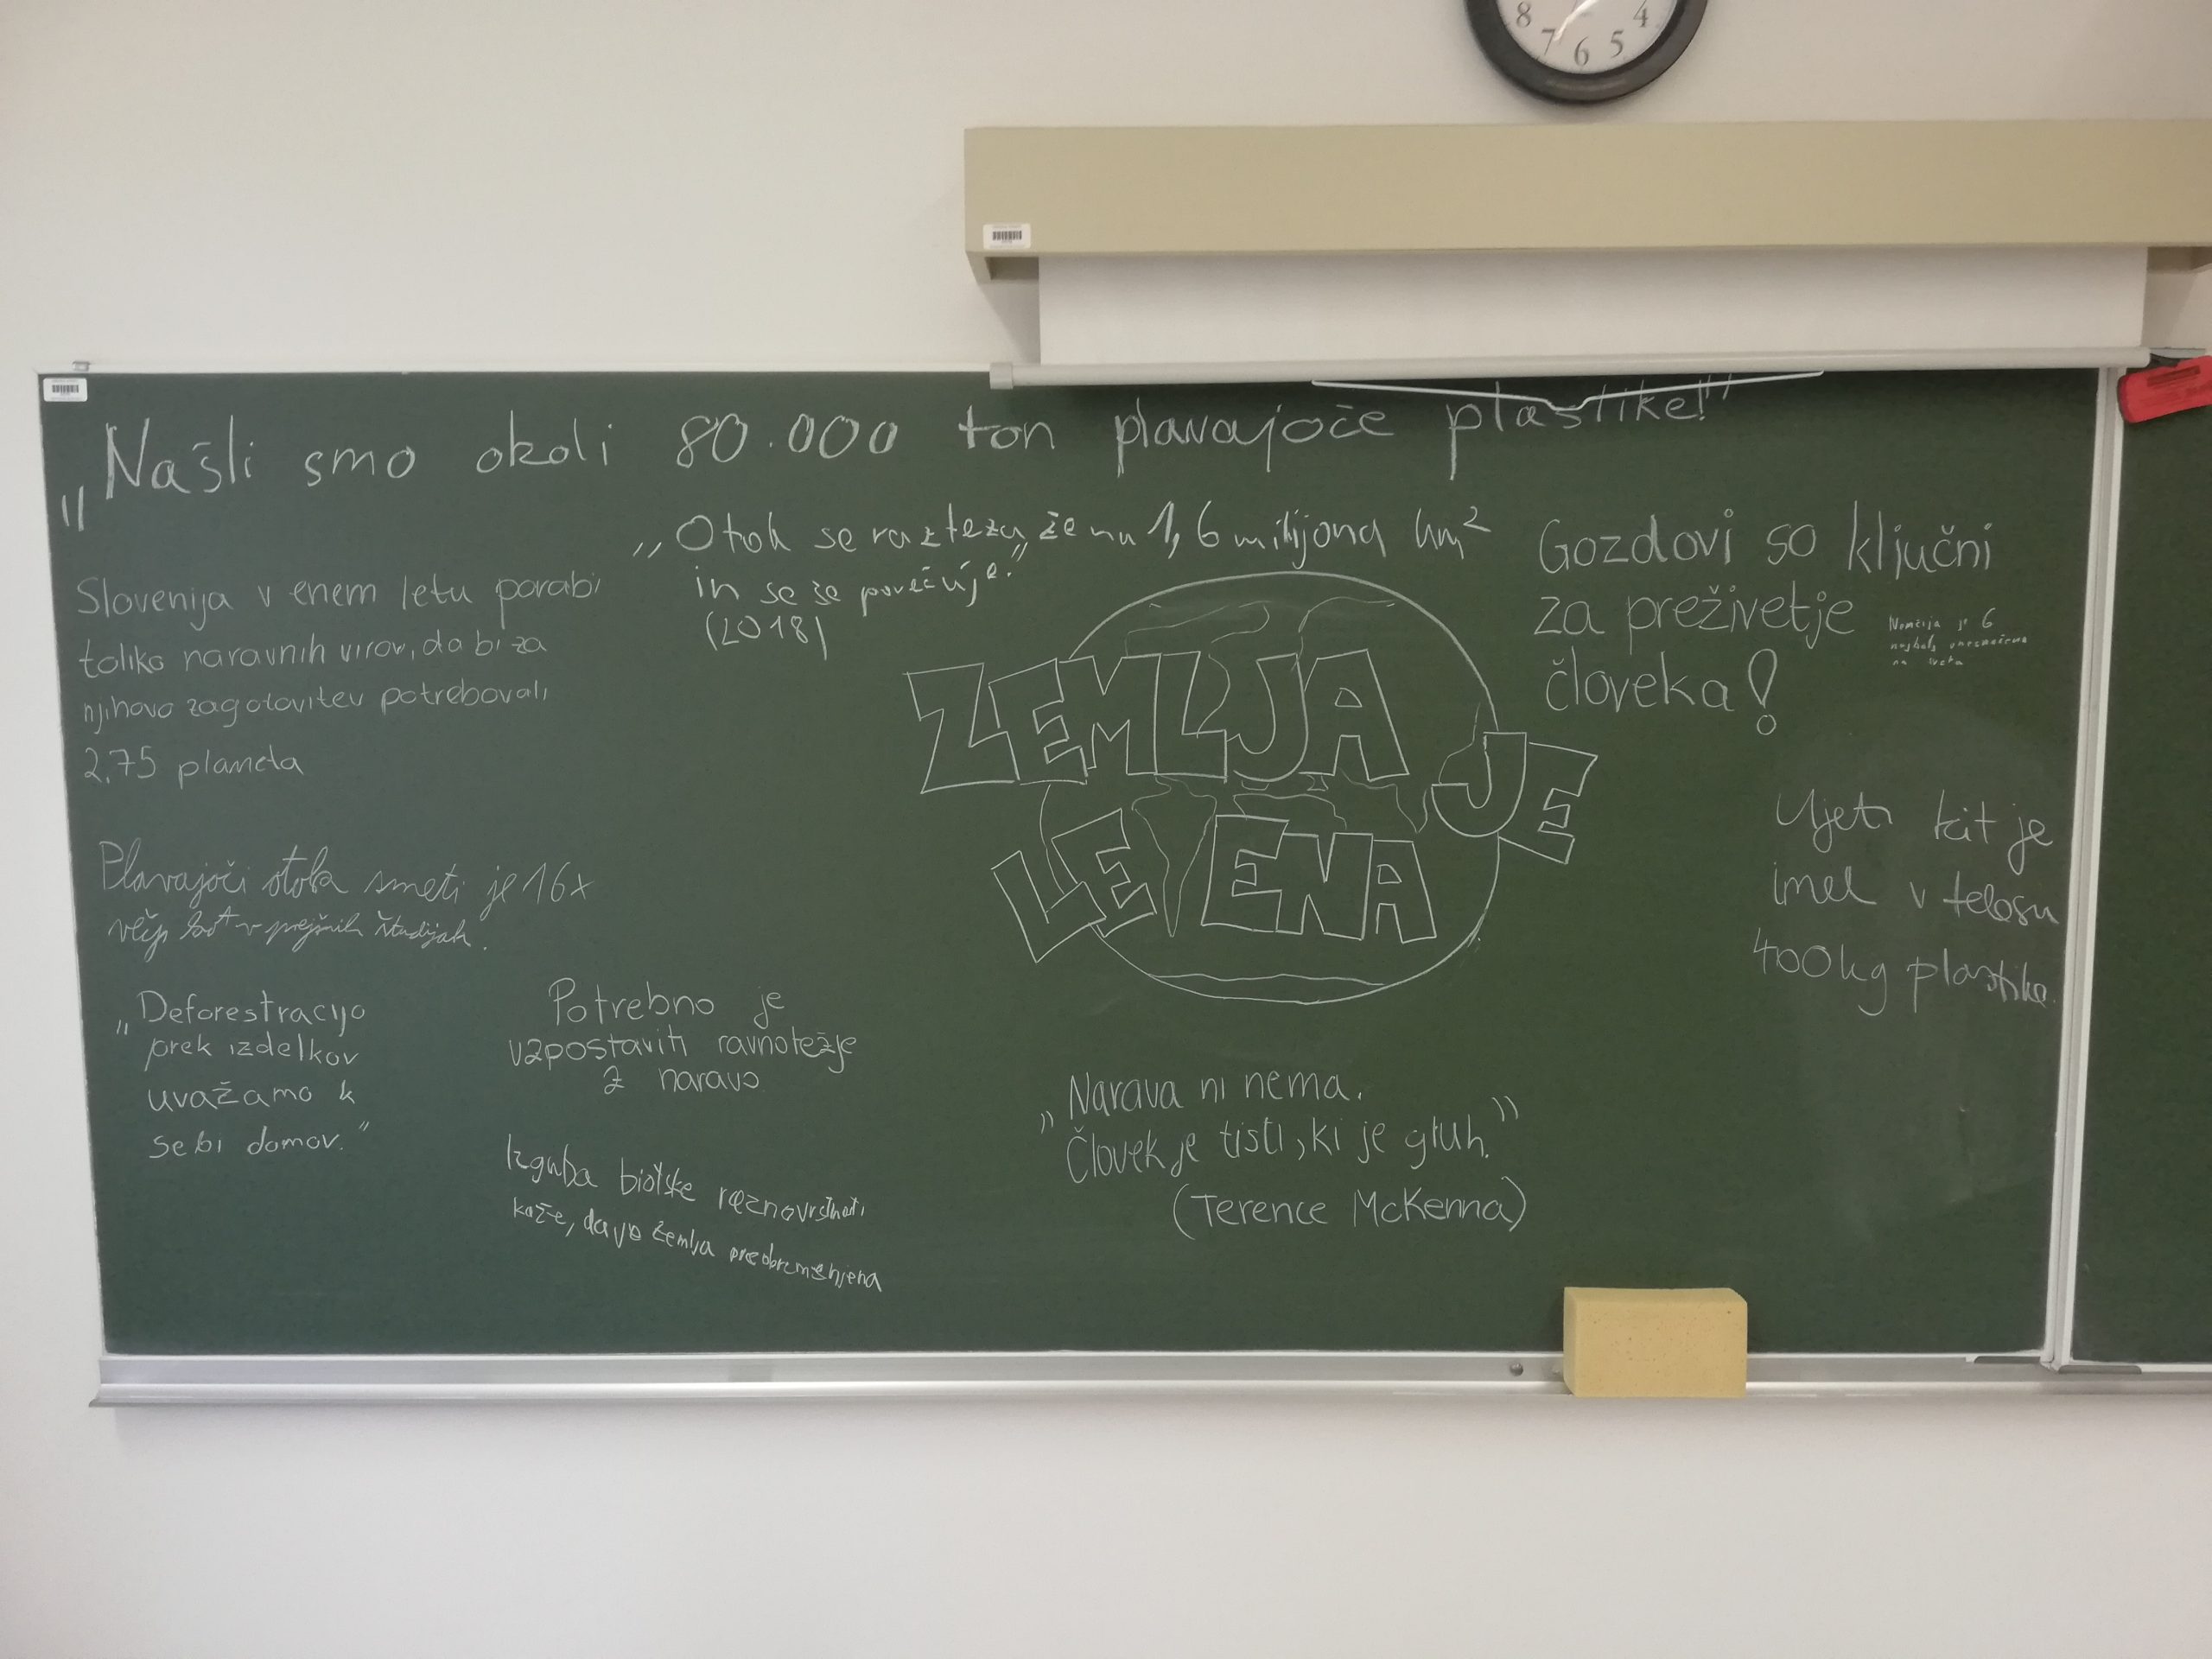 8 7 6 5 4
„Našli smo okoli 80.000 ton plavajoče plastike!"
„Otok se razteza že na 1,6 milijona km²
in se še povečuje."
(2018)
Gozdovi so ključni
za preživetje
človeka!
Nemčija je 6
najbolj onesnažena
na sveta
Slovenija v enem letu porabi
toliko naravnih virov, da bi za
njihovo zagotovitev potrebovali
2,75 planeta
ZEMLJA
JE
LE ENA
Ujeti kit je
imel v telesu
400kg plastike.
Plavajoči otok smeti je 16x
večji kot v prejšnih študijah.
„Deforestracijo
prek izdelkov
uvažamo k
sebi domov."
Potrebno je
vzpostaviti ravnotežje
z naravo
Izguba biotske raznovrstnosti
kaže, da je zemlja preobremenjena
„Narava ni nema.
Človek je tisti, ki je gluh."
(Terence McKenna)